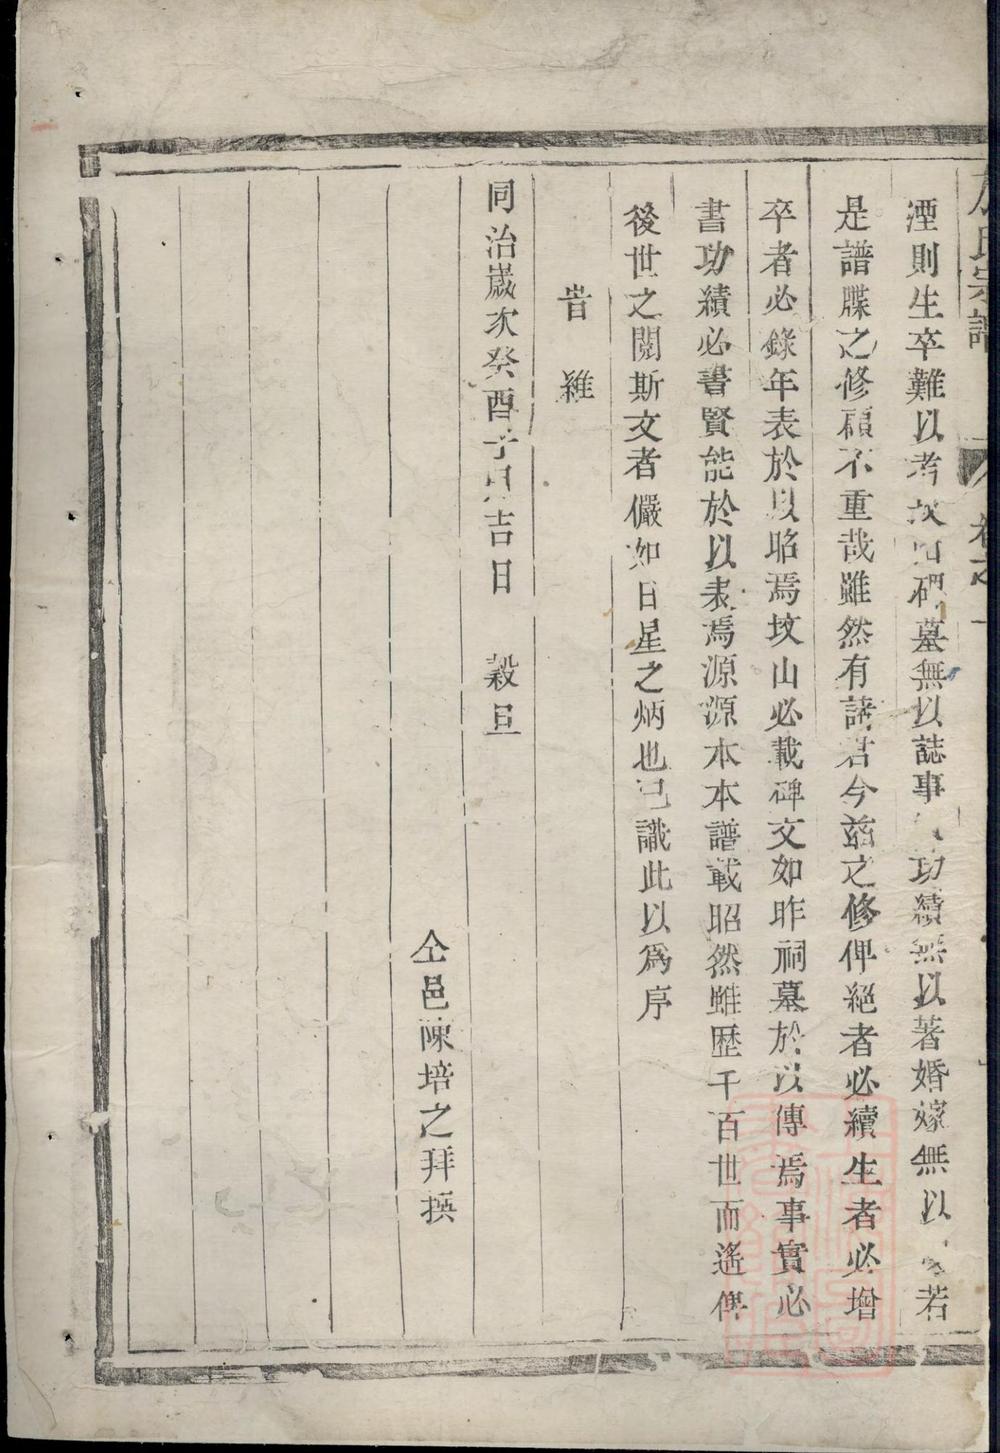 氏宗譜 卷之一
湮則生卒難以考故如碑墓無以誌事功績無以著婚嫁無以若
是譜牒之修顧不重哉雖然有諸君今茲之修俾絕者必續生者必增
卒者必錄年表於以昭焉坟山必載碑文如昨祠墓於以傳焉事實必
書功績必書賢能於以表焉源源本本譜載昭然雖歷千百世而遙俾
後世之閱斯文者儼如日星之炳也已識此以為序
旹維
同治歲次癸酉子月吉日 穀旦
仝邑陳培之拜撰